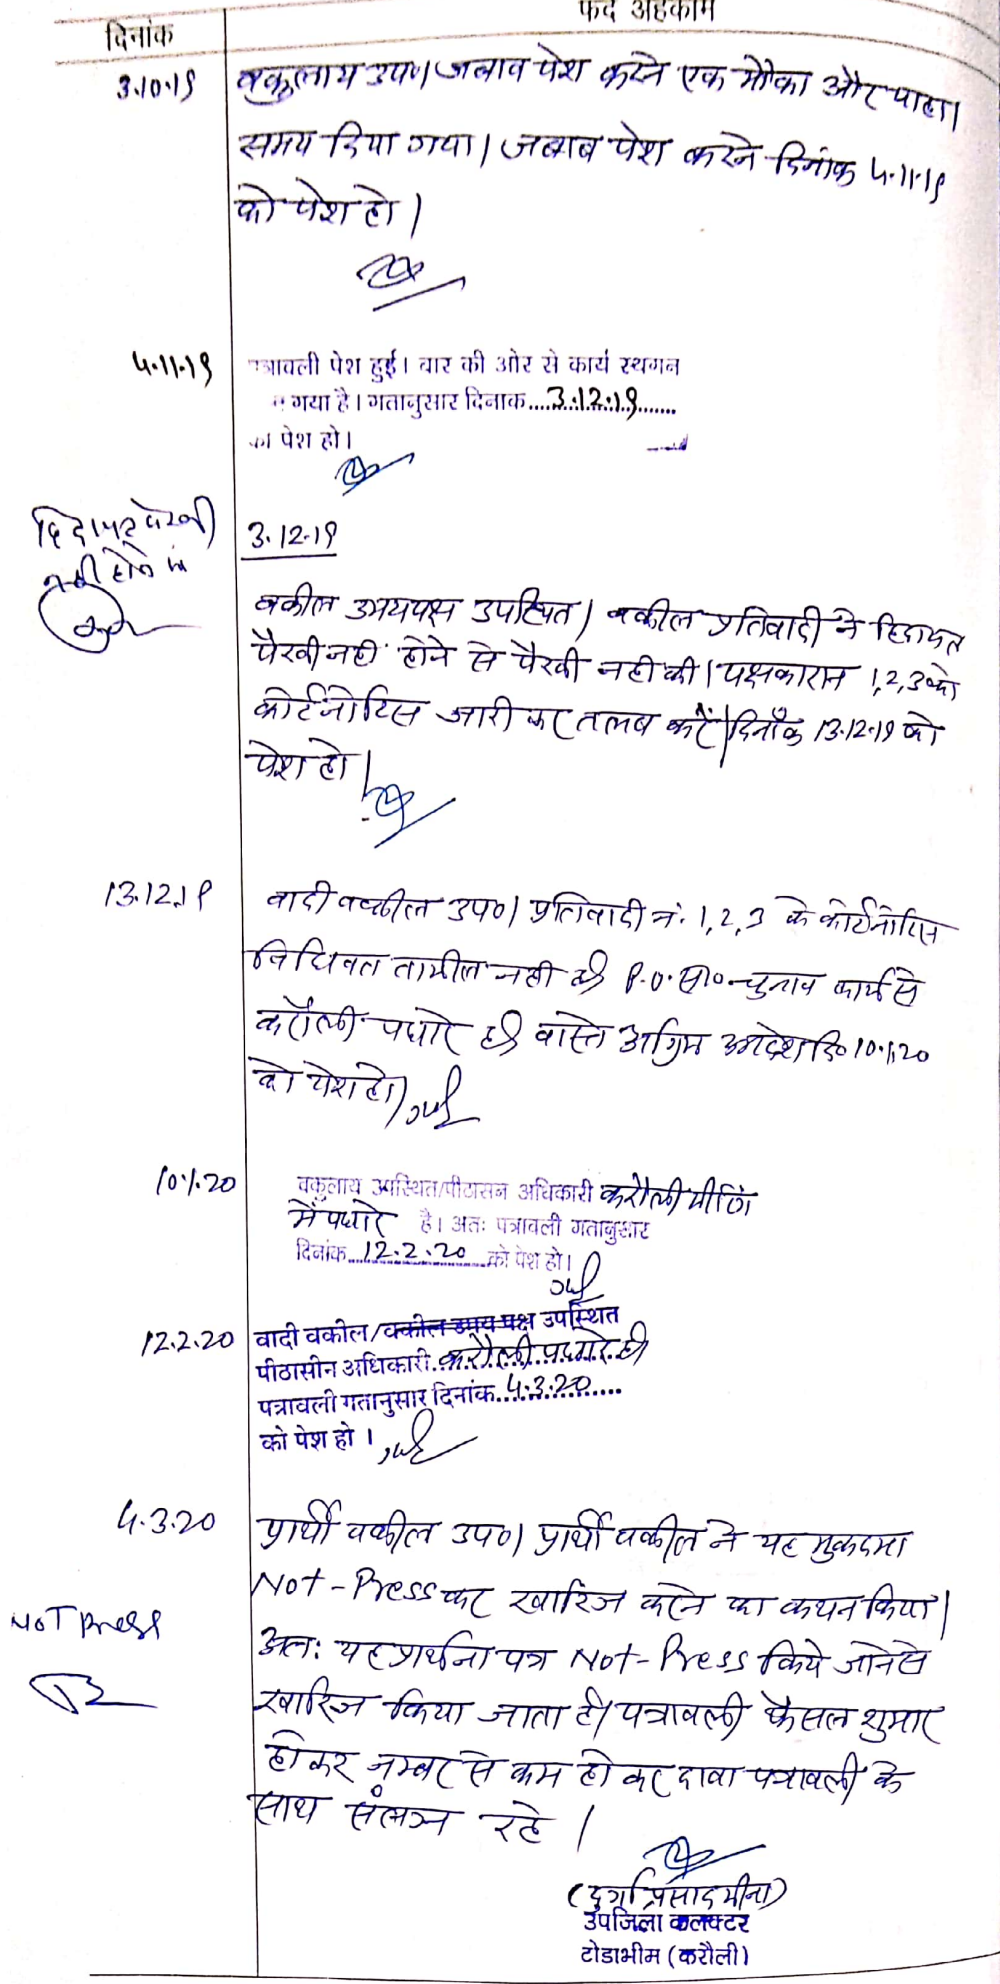 फर्द अहकाम
दिनांक
3.10.19 वकुलाय उप०। जवाब पेश करने एक मौका और चाहा।
समय दिया गया। जवाब पेश करने दिनांक 4.11.19
को पेश हो।
4.11.19 पत्रावली पेश हुई। बार की ओर से कार्य स्थगन
गया है। गतानुसार दिनाक....3.12.19.......
को पेश हो।
नहीं होने
3.12.19
वकील उभयपक्ष उपस्थित। वकील प्रतिवादी ने हिदायत
पैरवी नही होने से पैरवी नही की। पक्षकारान 1,2,3 को
कोर्ट नोटिस जारी कर तलब करें। दिनाँक 13.12.19 को
पेश हो।
13.12.19 वादी वकील उप०। प्रतिवादी नं. 1,2,3 के कोर्ट नोटिस
विधिवत तामील नही है P.O. सा० चुनाव कार्य से
करौली पधारे है वास्ते अग्रिम आदेश दि० 10.1.20
को पेश हो।
10.1.20 वकुलाय उपस्थित/पीठासन अधिकारी करौली मीटिंग
में पधारे है। अतः पत्रावली गतानुसार
दिनांक....12.2.20......को पेश हो।
12.2.20 वादी वकील/वकील उभय पक्ष उपस्थित
पीठासीन अधिकारी करौली पधारे है
पत्रावली गतानुसार दिनांक..4.3.20......
को पेश हो ।
4.3.20 प्रार्थी वकील उप०। प्रार्थी वकील ने यह मुकदमा
Not-Press कर खारिज करने का कथन किया।
NOT Press
अतः यह प्रार्थना पत्र Not-Press किये जाने से
खारिज किया जाता है। पत्रावली फैसल शुमार
होकर नम्बर से कम हो कर दावा पत्रावली के
साथ संलग्न रहे।
(दुर्गा प्रसाद मीना)
उपजिला कलक्टर
टोडाभीम (करौली)